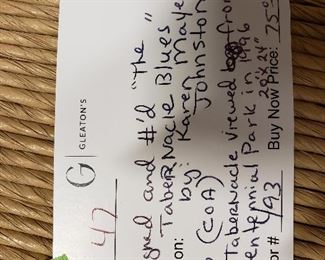 G GLEATON'S
47
gned and #'d "The
on: TaberNacle Blues"
by: Karen Maye
Johnston
(COA)
TaberNacle viewed from
entennial Park in 1996
20"x24"
or# 4/93 Buy Now Price: 75